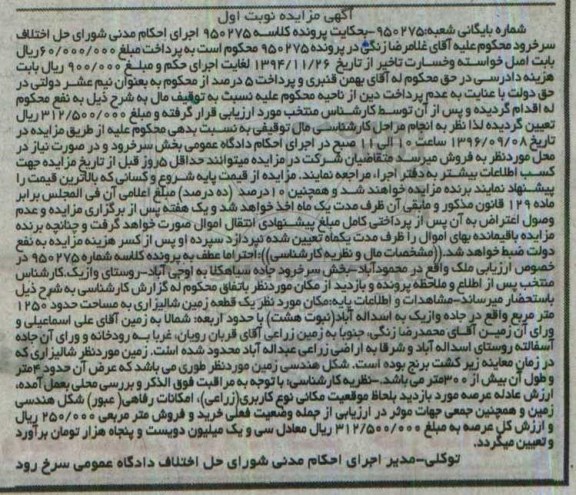 آگهی مزایده نوبت اول
شماره بایگانی شعبه:۹۵۰۲۷۵-بحکایت پرونده کلاسه ۹۵۰۲۷۵ اجرای احکام مدنی شورای حل اختلاف
سرخرود محکوم علیه آقای غلامرضا زنگی در پرونده ۹۵۰۲۷۵ محکوم است به پرداخت مبلغ ۶۰/۰۰۰/۰۰۰ ریال
بابت اصل خواسته وخسارت تاخیر از تاریخ ۱۳۹۴/۱۱/۲۶ لغایت اجرای حکم و مبلغ ۹۰۰/۰۰۰ ریال بابت
هزینه دادرسی در حق محکوم له آقای بهمن قنبری و پرداخت ۵ درصد از محکوم به بعنوان نیم عشر دولتی در
حق دولت با عنایت به عدم پرداخت دین از ناحیه محکوم علیه نسبت به توقیف مال به شرح ذیل به نفع محکوم
له اقدام گردیده و پس از آن توسط کارشناس منتخب مورد ارزیابی قرار گرفته و مبلغ ۳۱۲/۵۰۰/۰۰۰ ریال
تعیین گردیده لذا نظر به انجام مراحل کارشناسی مال توقیفی به نسبت بدهی محکوم علیه از طریق مزایده در
تاریخ ۱۳۹۶/۰۹/۰۸ ساعت ۱۰ الی ۱۱ صبح در اجرای احکام دادگاه عمومی بخش سرخرود و در صورت نیاز در
محل موردنظر به فروش میرسد متقاضیان شرکت در مزایده میتوانند حداقل ۵روز قبل از تاریخ مزایده جهت
کسب اطلاعات بیشتر به دفتر اجرا، مراجعه نمایند. مزایده از قیمت پایه شروع و کسانی که بالاترین قیمت را
پیشنهاد نمایند برنده مزایده خواهند شد و همچنین ۱۰درصد (ده درصد) مبلغ اعلامی آن فی المجلس برابر
ماده ۱۲۹ قانون مذکور و مابقی آن ظرف مدت یک ماه اخذ خواهد شد و یک هفته پس از برگزاری مزایده و عدم
وصول اعتراض به آن پس از پرداختی کامل مبلغ پیشنهادی انتقال اموال صورت خواهد گرفت و چنانچه برنده
مزایده باقیمانده بهای اموال را ظرف مدت یکماه تعیین شده نپردازد سپرده او پس از کسر هزینه مزایده به نفع
دولت ضبط خواهد شد.((مشخصات مال و نظریه کارشناسی)):احتراما عطف به پرونده کلاسه شماره ۹۵۰۲۷۵ در
خصوص ارزیابی ملک واقع در محمودآباد-بخش سرخرود جاده سیاهکلا به اوجی آباد-روستای وازیک.کارشناس
منتخب پس از اطلاع و ملاحظه پرونده و بازدید از مکان موردنظر باتفاق محکوم له گزارش کارشناسی به شرح ذیل
باستحضار میرساند-مشاهدات و اطلاعات پایه:مکان مورد نظر یک قطعه زمین شالیزاری به مساحت حدود ۱۲۵۰
متر مربع واقع در جاده وازیک به اسداله آباد(نبوت هشت) با حدود اربعه: شمالا به زمین آقای علی اسماعیلی و
ورای آن زمین آقای محمدرضا زنگی، جنوبا به زمین زراعی آقای قربان رویان، غربا به رودخانه و ورای آن جاده
آسفالته روستای اسداله آباد و شرقا به اراضی زراعی عبداله آباد محدود شده است. زمین موردنظر شالیزاری که
در زمان معاینه زیر کشت برنج بوده است. شکل هندسی زمین موردنظر طوری می باشد که عرض آن حدود ۴متر
و طول آن بیش از ۳۰۰متر می باشد.-نظریه کارشناسی: با توجه به مراقبت فوق الذکر و بررسی محلی بعمل آمده،
ارزش عادله عرصه مورد بازدید بلحاظ موقعیت مکانی نوع کاربری(زراعی)، امکانات رفاهی(عبور) شکل هندسی
زمین و همچنین جمعی جهات موثر در ارزیابی از جمله وضعیت فعلی خرید و فروش متر مربعی ۲۵۰/۰۰۰ ریال
و ارزش کل عرصه به مبلغ ۳۱۲/۵۰۰/۰۰۰ ریال معادل سی و یک میلیون دویست و پنجاه هزار تومان برآورد
و تعیین میگردد.
توکلی-مدیر اجرای احکام مدنی شورای حل اختلاف دادگاه عمومی سرخ رود